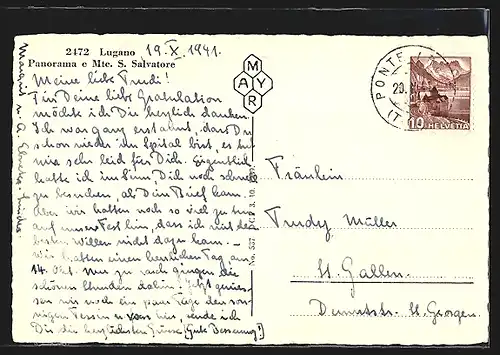 2472 Lugano
Panorama e Mte. S. Salvatore
19.X.1941.
Meine liebe Trudi!
Für Deine liebe Gratulation
möchte ich Dir herzlich danken.
Ich war ganz erstaunt, dass Du
schon wieder im Spital bist, es tut
mir sehr leid für Dich. Eigentlich
hatte ich im Sinn, Dich noch schnell
zu besuchen, als Dein Brief kam.
Aber wir hatten noch so viel zu tun
auf unser Fest hin, dass ich mit dem
besten Willen nicht dazu kam. -
Wir hatten einen herrlichen Tag am
14. Okt. Nur zu rasch gingen die
schönen Stunden dahin! Jetzt genies-
sen wir noch ein paar Tage den son-
nigen Tessin u. von hier sende ich
Dir die herzlichsten Grüsse (Gute Besserung!)
Margrit u. A.
MAYR
No. 557
3. 10.
PONTE
20.
(T
10 HELVETIA
Fräulein
Trudy Müller
St. Gallen.
St. Georgen.